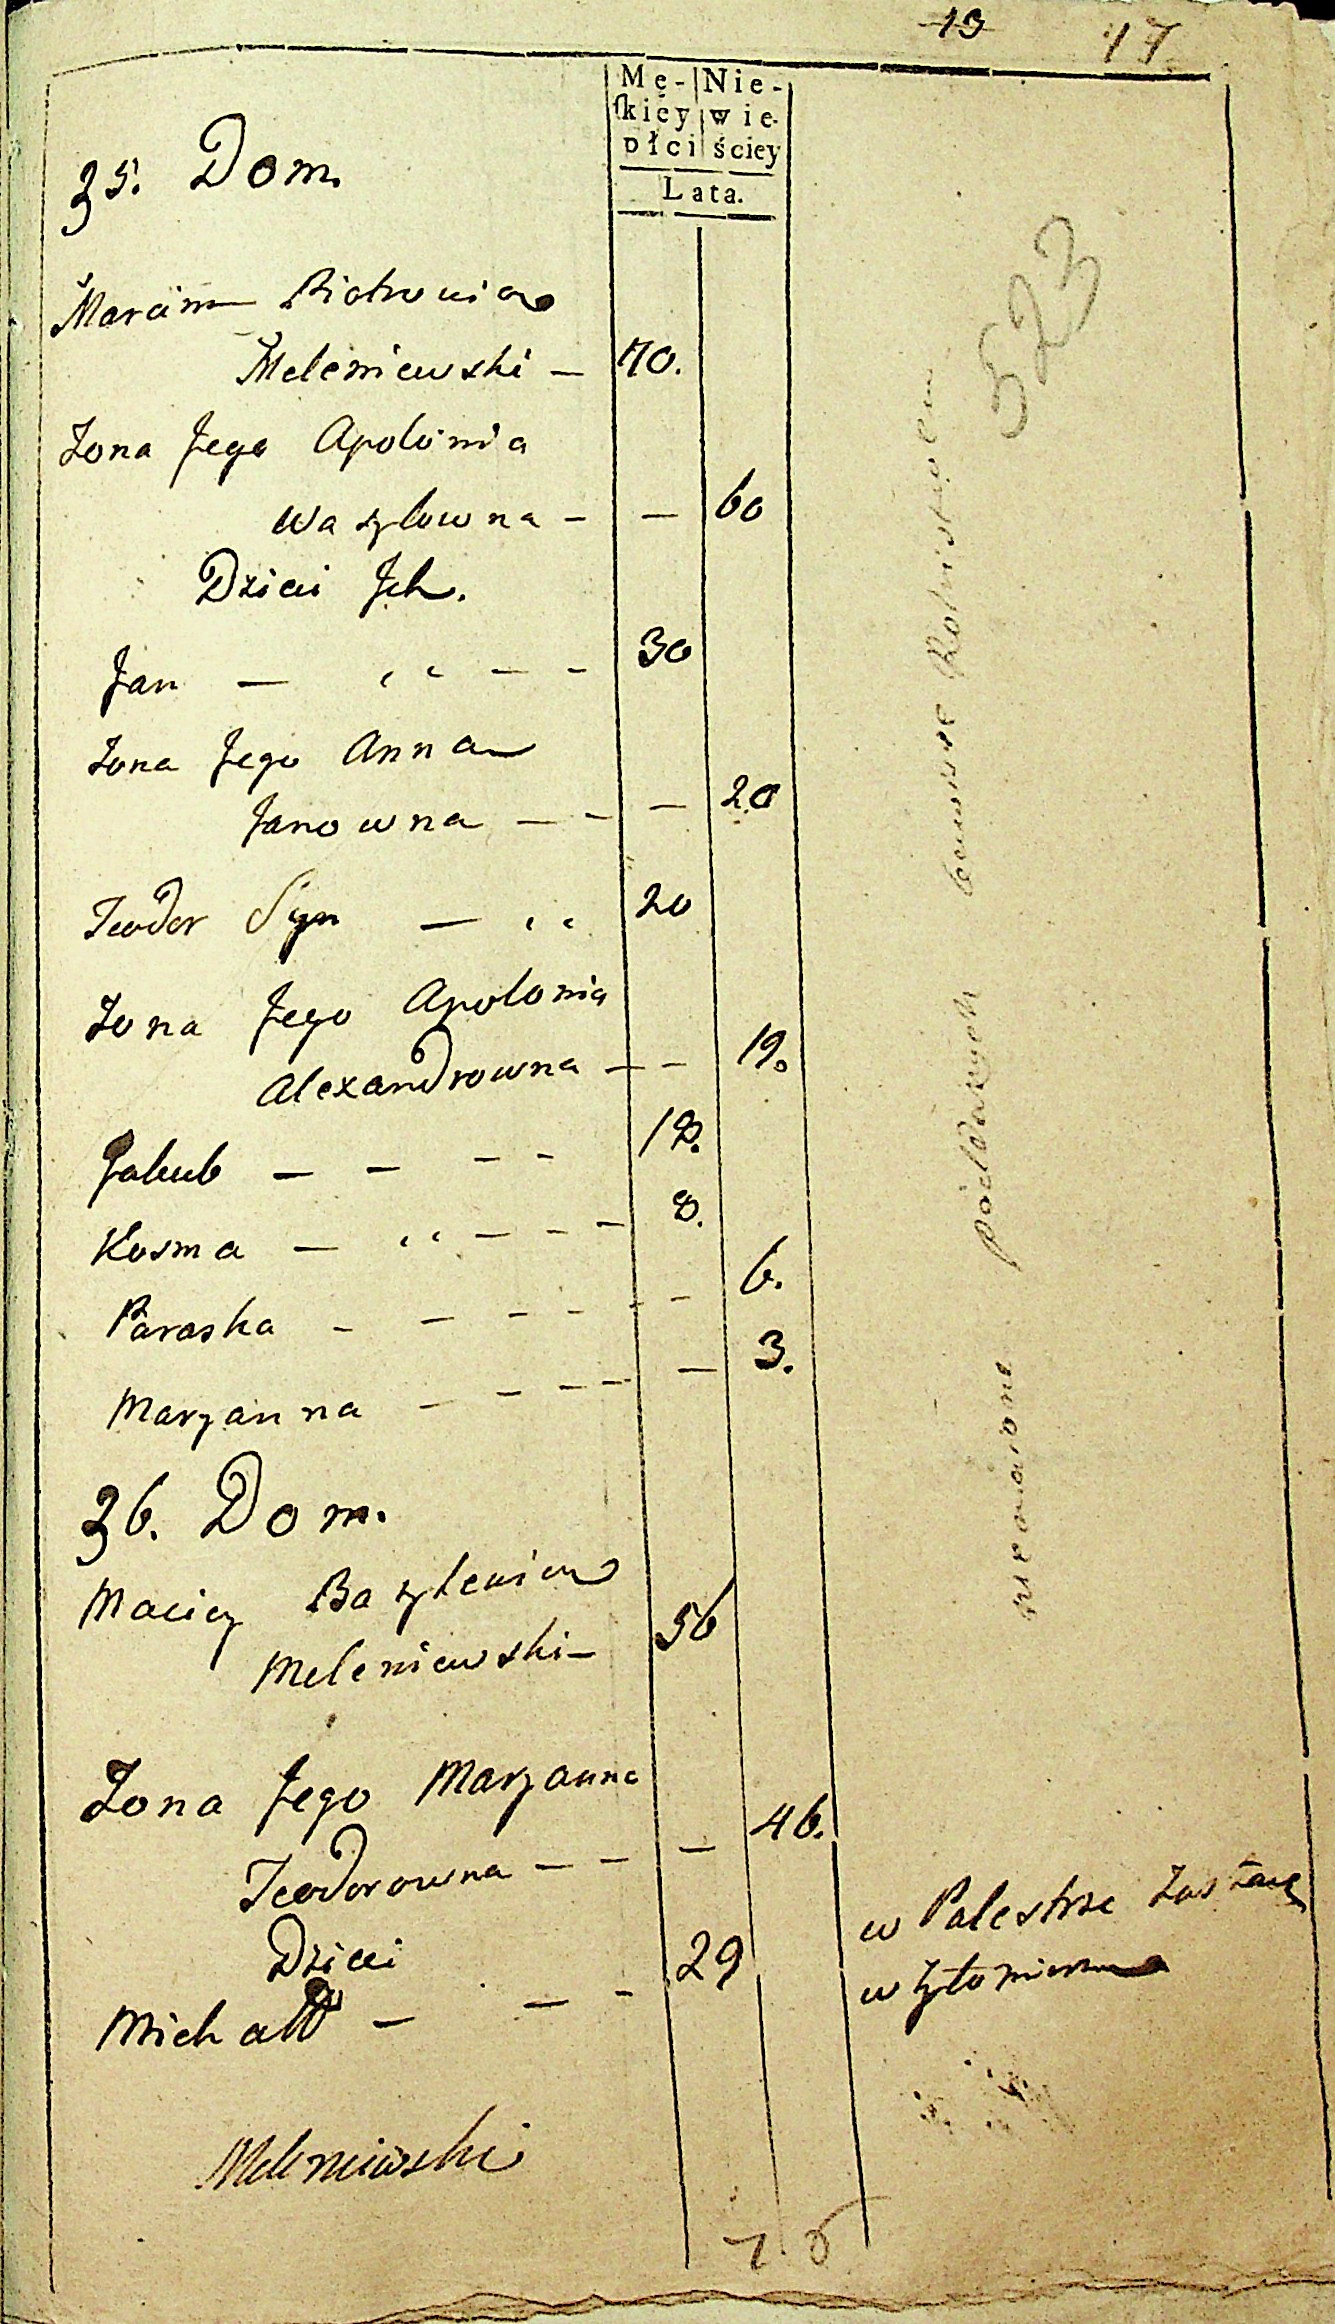 13 17.
Mę- Nie-
ſkiéy wie-
płci ściey
Lata.
35. Dom.
523
Marcin Piotrowicz
Meleniewski — 70.
Zona Jego Apolonia
Wasylowna - — 60
Dzieci Jch.
Jan — - - - 30
Zona Jego Anna
Janowna — - — 20
Teodor Syn — 20
Zona Jego Apolonia
Alexandrowna — - 19.
Jakub — - - - 18.
Kosma — - - - 8.
Paraska - - - - - - 6.
Maryanna - - - - — 3.
36. Dom.
Maciey Bazylewicz
Meleniewski - 56
Zona Jego Maryanna
Teodorowna - - — 46.
Dzieci
Michał - - - 29
w Palestrze
w Zytomierzu
Meleniewski
7 5